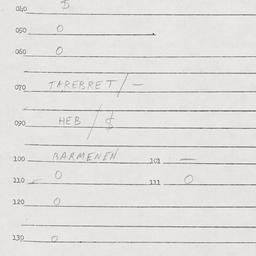 040 $
050 0
060 0
070 TAREBRET / —
090 HEB / $
100 BARMENEN 101 —
110 0 111 0
120 0
130 0